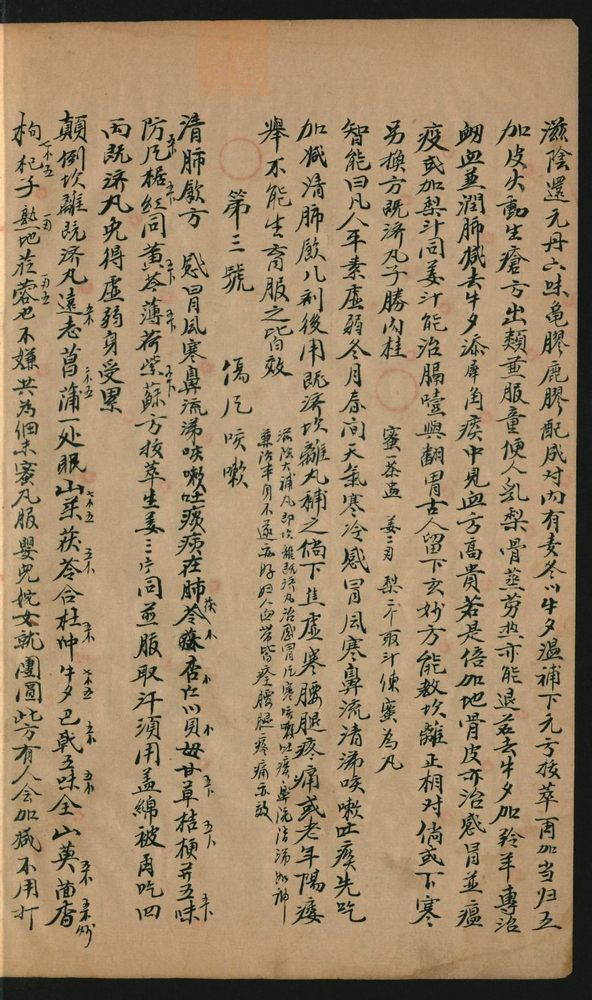 滋陰還元丹六味龜膠鹿膠配成对内有麦冬以牛夕温補下元方按萃再加当归五
加皮火動生瘡方出類並服童便人乳梨骨蒸劳热亦能退若去牛夕加羚羊專治
衂血並潤肺减去牛夕添犀角痰中見血方高貴若是倍加地骨皮亦治感冒並瘟
疫或加梨汁同姜汁能治膈噎與翻胃古人留下玄妙方能教坎離正相对倘或下寒
另換方既济丸子勝肉桂
蜜一茶盅 姜二刃 梨二个取汁煉蜜為丸
智能曰凡人平素虛弱冬月春间天氣寒冷感冒风寒鼻流清涕咳嗽吐痰先吃
加减清肺飲几剂後用既济坎離丸補之倘下焦虛寒腰腿疼痛或老年陽痿
舉不能生育服之皆效
滋陰大補丸即坎離既济丸治感冒风寒咳嗽吐痰鼻流清涕如神
兼治半身不遂亦好妇人血劳皆痊腰腿疼痛亦效
第三號 傷风咳嗽
清肺飲方 感冒风寒鼻流涕咳嗽吐痰痰在肺苓蘇杏仁以貝母甘草桔梗并五味
防风橘紅同黄芩薄荷紫蘇方按萃生姜三片同並服取汗須用盖綿被再吃四
丙既济丸免得虛弱身受累
顛倒坎離既济丸遠志菖蒲一处眠山药茯苓合杜仲牛夕巴戟五味全山萸茴香
枸杞子熟地蓯蓉也不嫌共為细末蜜丸服嬰兒姹女就團圓此方有人会加减不用打